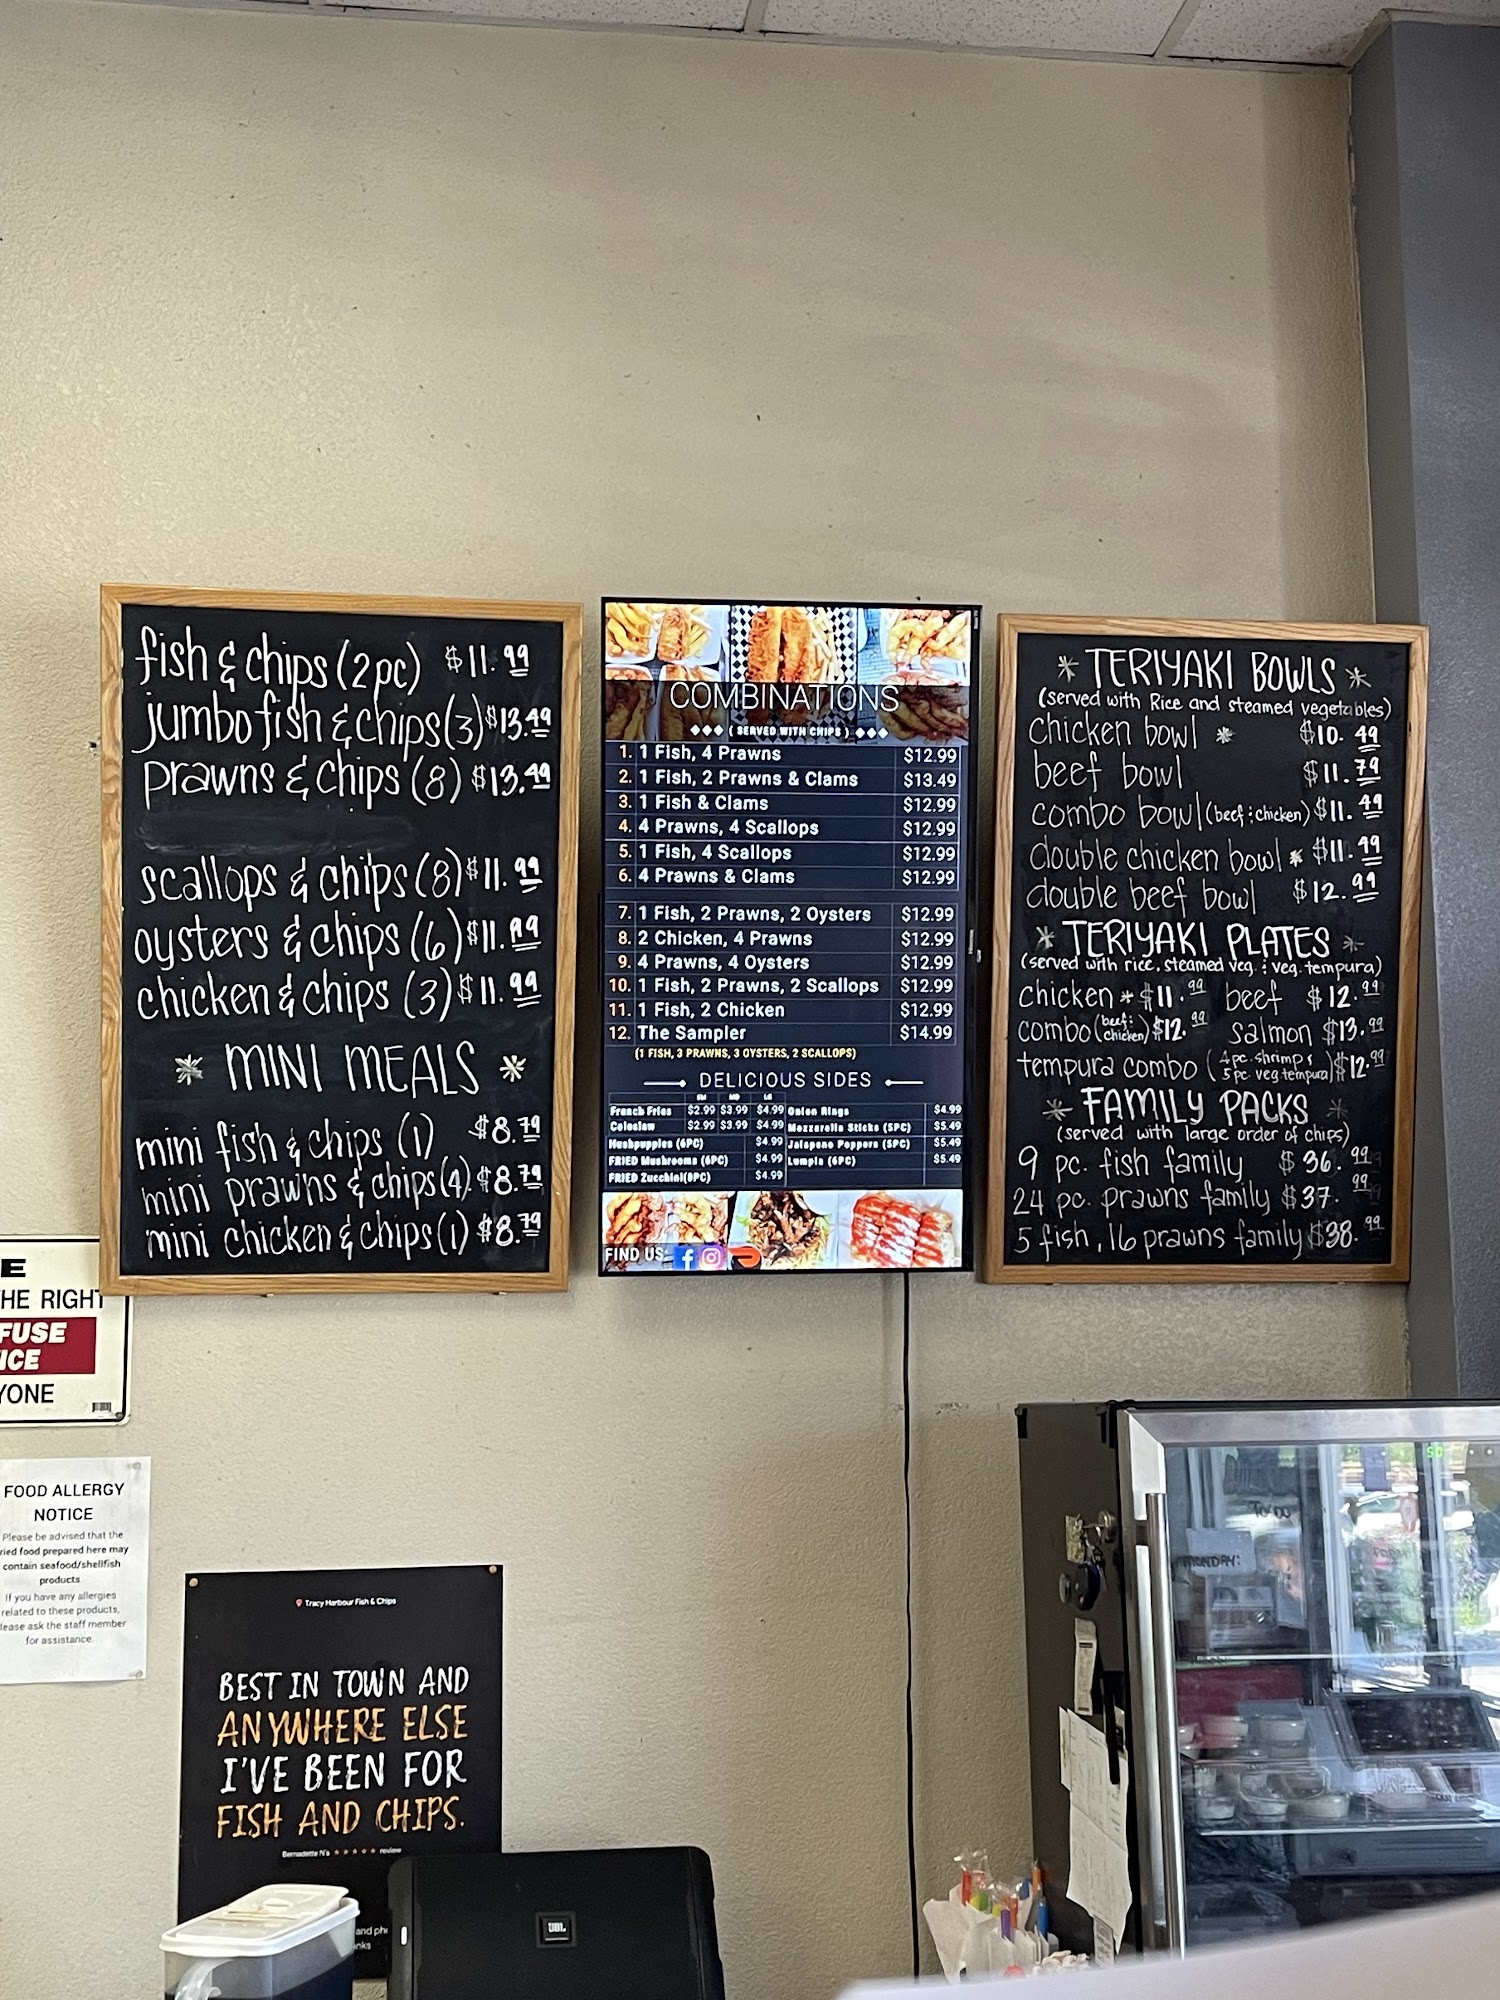 fish & chips (2pc) $11.99
jumbo fish & chips (3) $13.49
prawns & chips (8) $13.49
scallops & chips (8) $11.99
oysters & chips (6) $11.99
chicken & chips (3) $11.99
* MINI MEALS *
mini fish & chips (1) $8.79
mini prawns & chips (4) $8.79
mini chicken & chips (1) $8.79
COMBINATIONS
( SERVED WITH CHIPS )
1. 1 Fish, 4 Prawns $12.99
2. 1 Fish, 2 Prawns & Clams $13.49
3. 1 Fish & Clams $12.99
4. 4 Prawns, 4 Scallops $12.99
5. 1 Fish, 4 Scallops $12.99
6. 4 Prawns & Clams $12.99
7. 1 Fish, 2 Prawns, 2 Oysters $12.99
8. 2 Chicken, 4 Prawns $12.99
9. 4 Prawns, 4 Oysters $12.99
10. 1 Fish, 2 Prawns, 2 Scallops $12.99
11. 1 Fish, 2 Chicken $12.99
12. The Sampler $14.99
(1 FISH, 3 PRAWNS, 3 OYSTERS, 2 SCALLOPS)
DELICIOUS SIDES
SM MD LG
French Fries $2.99 $3.99 $4.99
Coleslaw $2.99 $3.99 $4.99
Hushpuppies (6PC) $4.99
FRIED Mushrooms (6PC) $4.99
FRIED Zucchini(8PC) $4.99
Onion Rings $4.99
Mozzarella Sticks (5PC) $5.49
Jalapeno Poppers (5PC) $5.49
Lumpia (6PC) $5.49
FIND US:
* TERIYAKI BOWLS *
(served with Rice and steamed vegetables)
chicken bowl * $10.49
beef bowl $11.79
combo bowl (beef & chicken) $11.49
double chicken bowl * $11.49
double beef bowl $12.99
* TERIYAKI PLATES *
(served with rice, steamed veg. & veg. tempura)
chicken * $11.99 beef $12.99
combo (beef & chicken) $12.99 salmon $13.99
tempura combo (4pc. shrimp & 5 pc. veg tempura) $12.99
* FAMILY PACKS *
(served with large order of chips)
9 pc. fish family $36.99
24 pc. prawns family $37.99
5 fish, 16 prawns family $38.99
E
HE RIGHT
FUSE
ICE
YONE
FOOD ALLERGY
NOTICE
Please be advised that the
ried food prepared here may
contain seafood/shellfish
products
If you have any allergies
related to these products,
lease ask the staff member
for assistance.
Tracy Harbour Fish & Chips
BEST IN TOWN AND
ANYWHERE ELSE
I'VE BEEN FOR
FISH AND CHIPS.
Bernadette N's ★★★★★ review
JBL